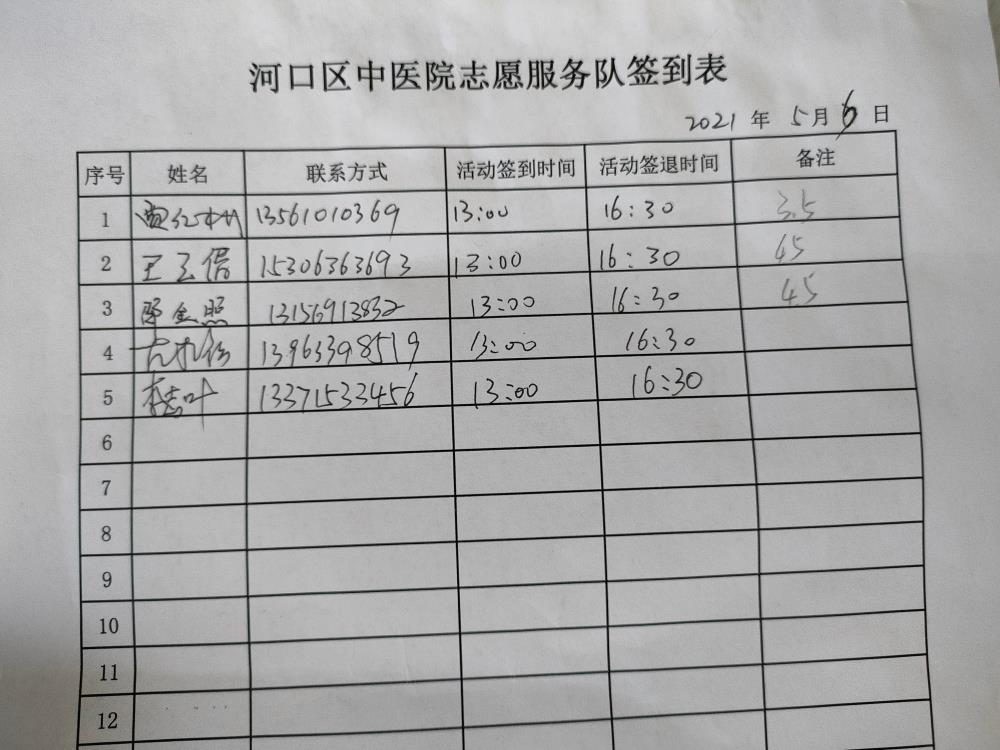 河口区中医院志愿服务队签到表
2021 年 5月 6 日
序号 姓名 联系方式 活动签到时间 活动签退时间 备注
1 13561010369 13:00 16:30 3.5
2 王玉信 15306363693 13:00 16:30 45
3 金照 13156913832 13:00 16:30 45
4 13963398519 13:00 16:30
5 李志叶 13371533456 13:00 16:30
6
7
8
9
10
11
12